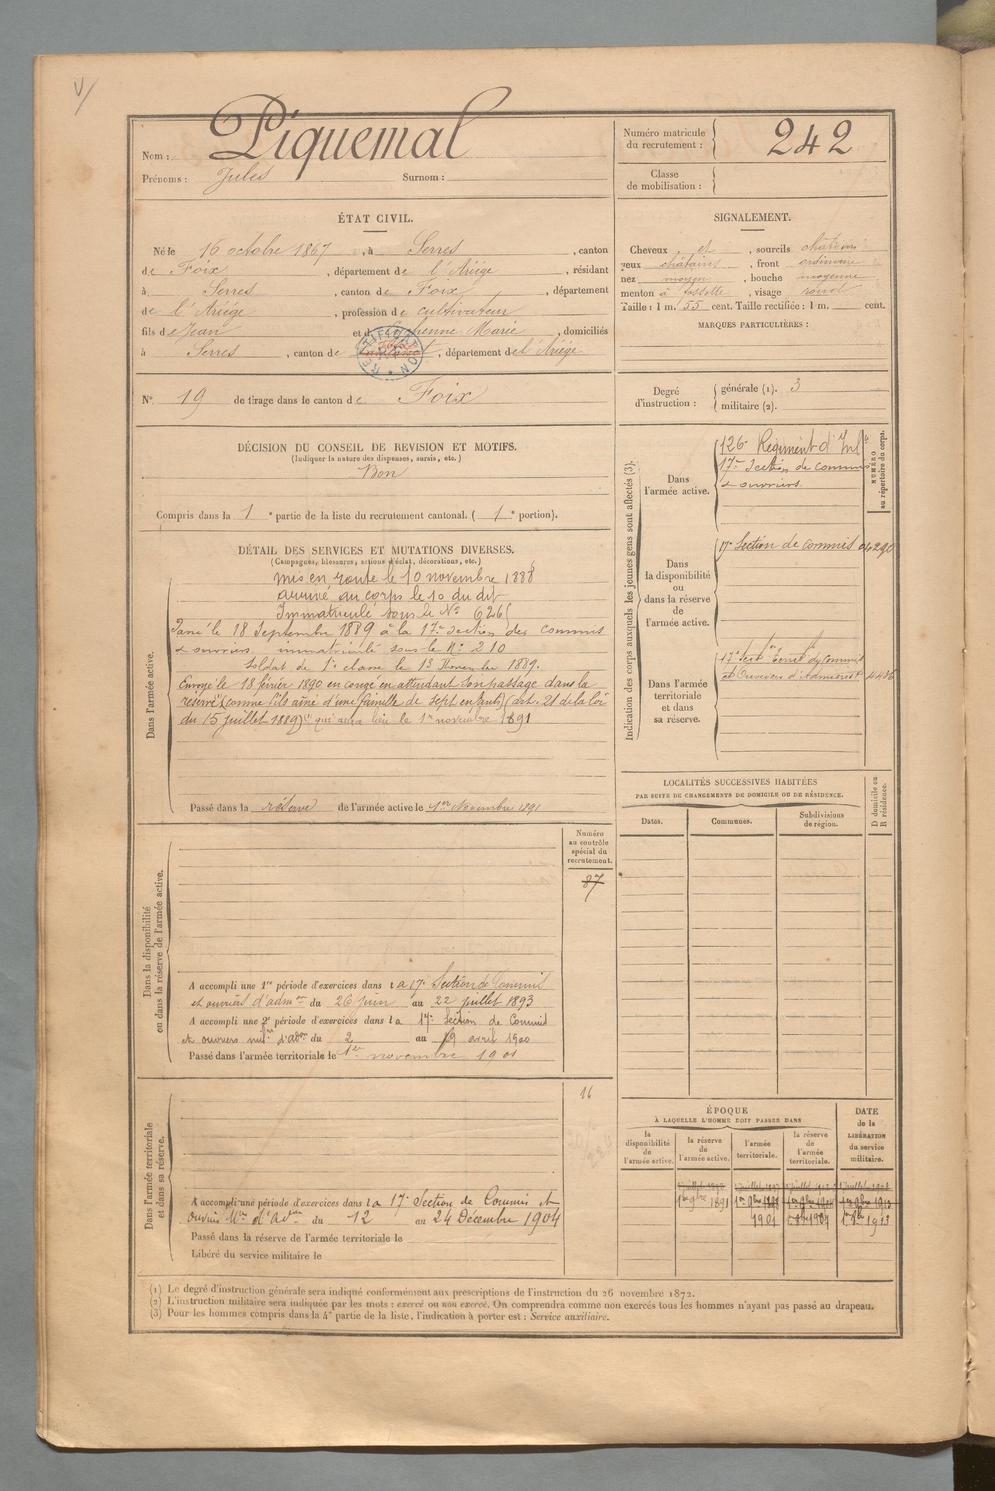 Nom : Piquemal
Prénoms : Jules Surnom :
Numéro matricule
du recrutement : 242
Classe
de mobilisation :
ÉTAT CIVIL.
Né le 16 octobre 1867, à Serres, canton
de Foix, département de l'Ariége, résidant
à Serres, canton de Foix, département
de l'Ariége, profession de cultivateur
fils de Jean et d' Marie, domiciliés
à Serres, canton de , département de l'Ariége
RECTIFICATION
N° 19 de tirage dans le canton de Foix
SIGNALEMENT.
Cheveux et, sourcils châtains
yeux châtains, front ordinaire
nez moyen, bouche moyenne
menton à fossette, visage rond
Taille : 1 m. 55 cent. Taille rectifiée : 1 m. cent.
MARQUES PARTICULIÈRES :
Degré
d'instruction :
générale (1). 3
militaire (2).
DÉCISION DU CONSEIL DE REVISION ET MOTIFS.
(Indiquer la nature des dispenses, sursis, etc.)
Bon
Compris dans la 1e partie de la liste du recrutement cantonal. (1e portion).
DÉTAIL DES SERVICES ET MUTATIONS DIVERSES.
(Campagnes, blessures, actions d'éclat, décorations, etc.)
Dans l'armée active.
Mis en route le 10 novembre 1888
arrivé au corps le 10 du dit
Immatriculé sous le N° 626
Passé le 18 Septembre 1889 à la 17e Section des commis
& ouvriers immatriculé sous le N° 210
Soldat de 1e classe le 13 Novembre 1889.
Envoyé le 18 février 1890 en congé en attendant son passage dans la
réserve (comme fils aîné d'une famille de sept enfants) (art. 21 de la loi
du 15 juillet 1889) qui aura lieu le 1er novembre 1891
Passé dans la réserve de l'armée active le 1er Novembre 1891
Indication des corps auxquels les jeunes gens sont affectés (3).
NUMÉRO
au répertoire du corps.
Dans
l'armée active.
126e Régiment d'Infie
17e Section de commis
& ouvriers
Dans
la disponibilité
ou
dans la réserve
de
l'armée active.
17e Section de commis
Dans l'armée
territoriale
et dans
sa réserve.
17e Sect. Territ. de Commis
et Ouvriers d'Administ.
LOCALITÉS SUCCESSIVES HABITÉES
PAR SUITE DE CHANGEMENTS DE DOMICILE OU DE RÉSIDENCE.
Dates. Communes. Subdivisions
de région.
D domicile ou
R résidence.
Dans la disponibilité
ou dans la réserve de l'armée active.
Numéro
au contrôle
spécial du
recrutement.
87
A accompli une 1re période d'exercices dans la 17e Section de Commis
et ouvriers d'admon du 26 juin au 22 juillet 1893
A accompli une 2e période d'exercices dans la 17e Section de Commis
et ouvriers milres d'adon du 2 au 19 avril 1900
Passé dans l'armée territoriale le 1er novembre 1901
Dans l'armée territoriale
et dans sa réserve.
16
A accompli une période d'exercices dans la 17e Section de Commis et
ouvriers d'Adon du 12 au 24 Décembre 1904
Passé dans la réserve de l'armée territoriale le
Libéré du service militaire le
ÉPOQUE
À LAQUELLE L'HOMME DOIT PASSER DANS
la
disponibilité
de
l'armée active.
la réserve
de
l'armée active.
l'armée
territoriale.
la réserve
de
l'armée
territoriale.
DATE
de la
LIBÉRATION
du service
militaire.
1er 9bre 1891
1901 1907 1913
(1) Le degré d'instruction générale sera indiqué conformément aux prescriptions de l'instruction du 26 novembre 1872.
(2) L'instruction militaire sera indiquée par les mots : exercé ou non exercé. On comprendra comme non exercés tous les hommes n'ayant pas passé au drapeau.
(3) Pour les hommes compris dans la 4e partie de la liste, l'indication à porter est : Service auxiliaire.